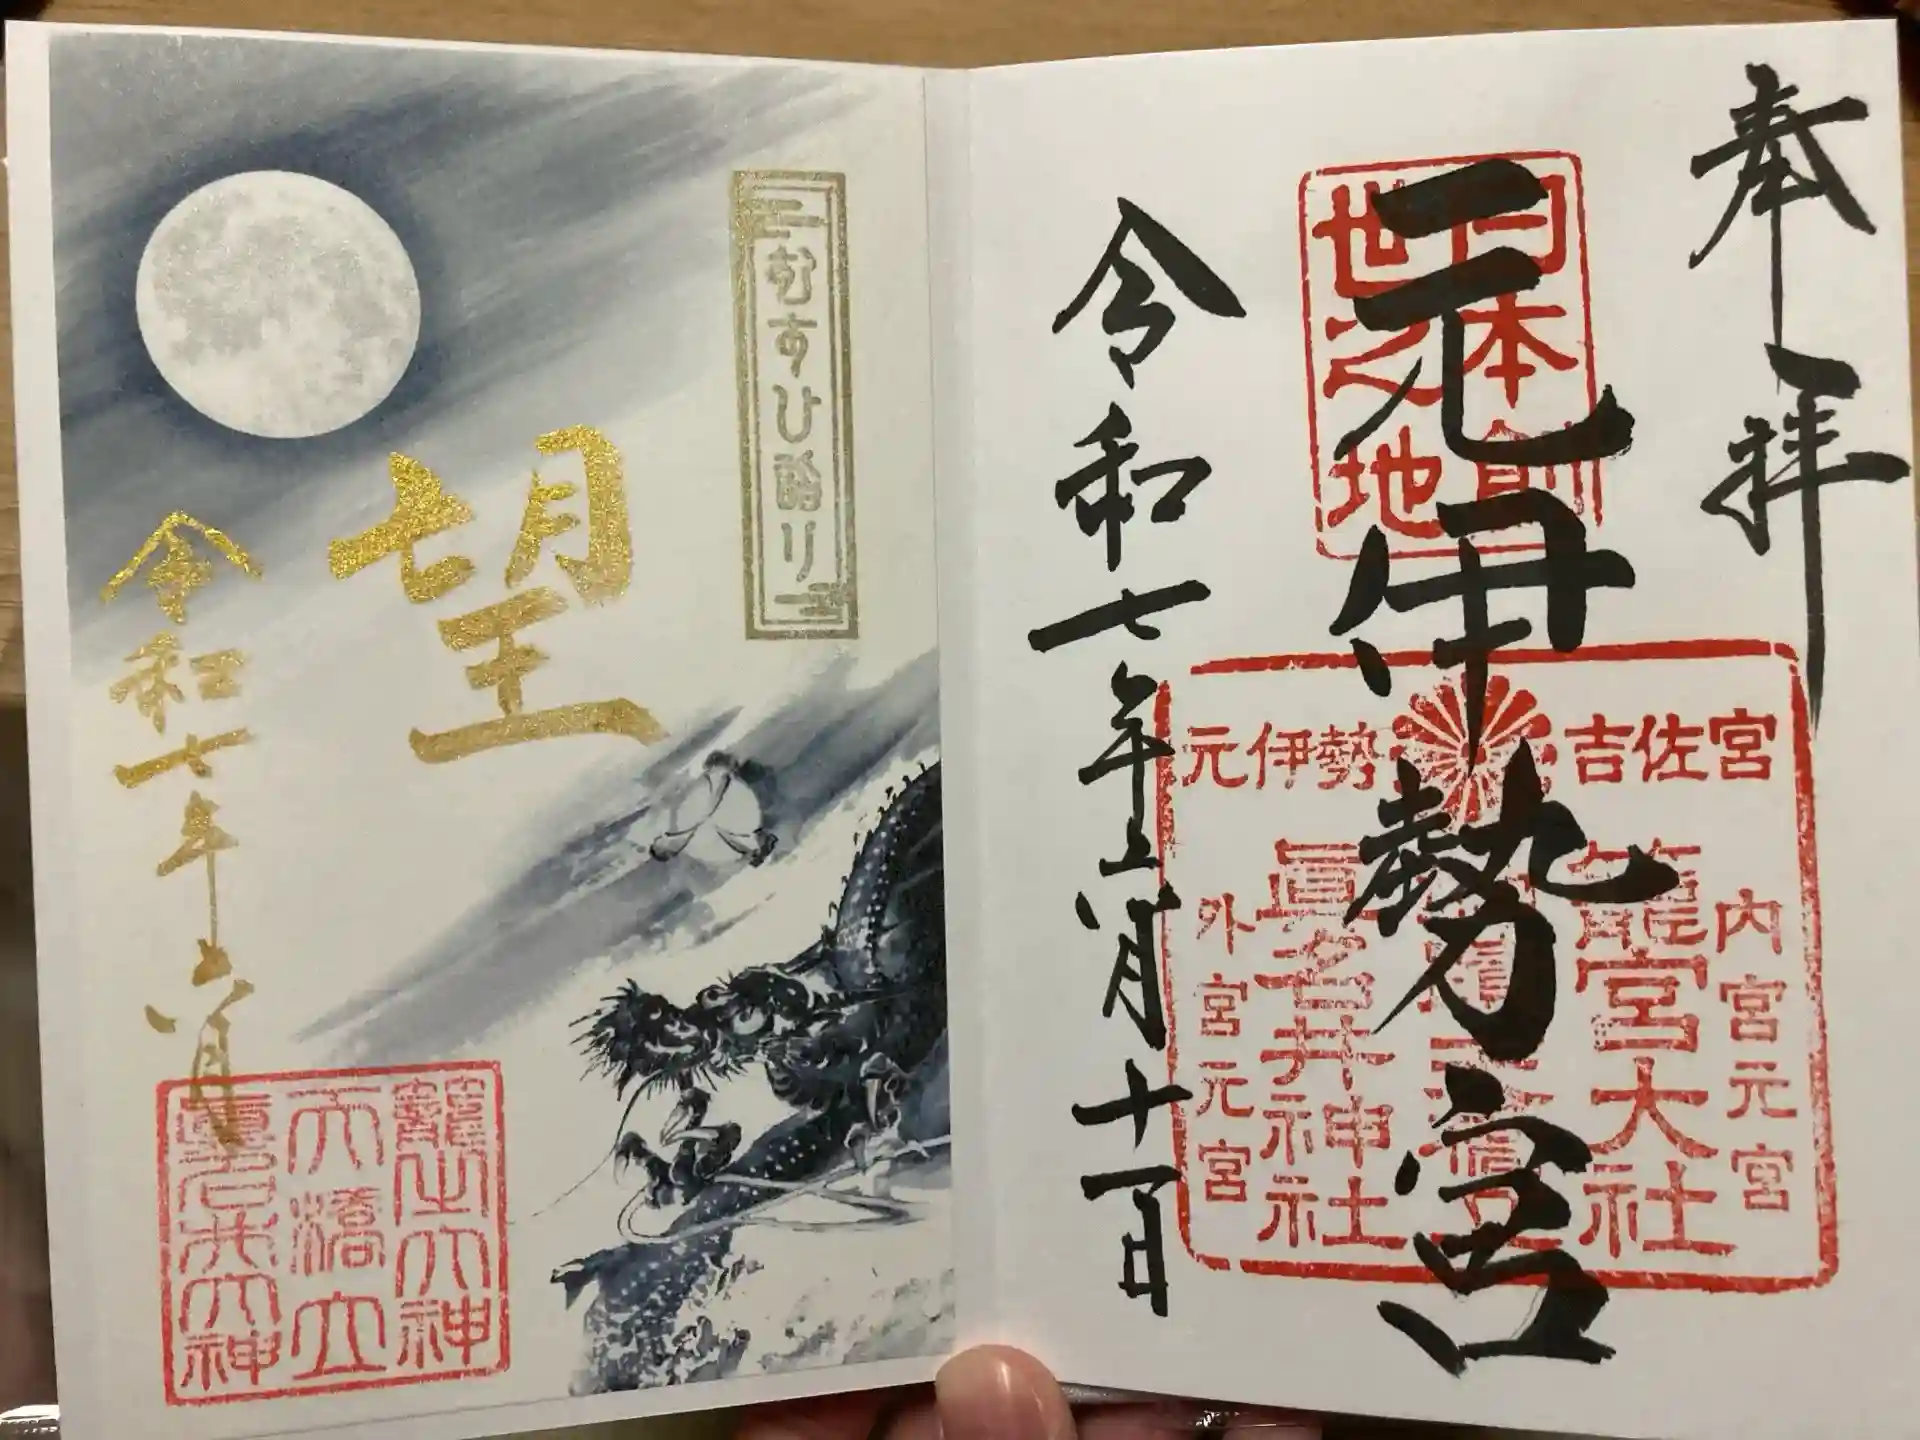 奉拝
日本創
世之地
元伊勢宮
元伊勢
吉佐宮
内宮元宮
籠宮大社
眞名井神社
外宮元宮
令和七年六月十一日
むすひ詣り
望
令和七年六月
籠大神
天橋立
眞名井大神